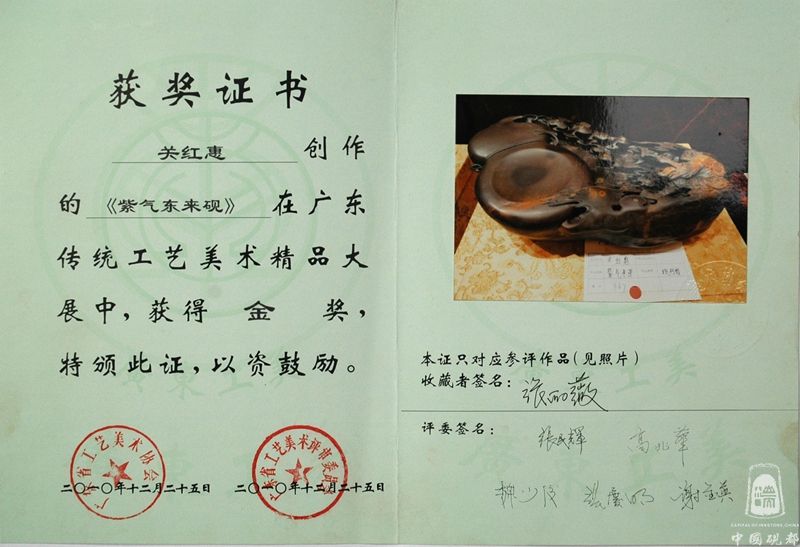 获奖证书
关红惠 创作
的《紫气东来砚》在广东
传统工艺美术精品大
展中，获得 金 奖，
特颁此证，以资鼓励。
广东省工艺美术协会
二〇一〇年十二月二十五日
广东省工艺美术评审委员会
二〇一〇年十二月二十五日
本证只对应参评作品（见照片）
收藏者签名：
评委签名：
CAPITAL OF INKSTONE, CHINA
中国砚都